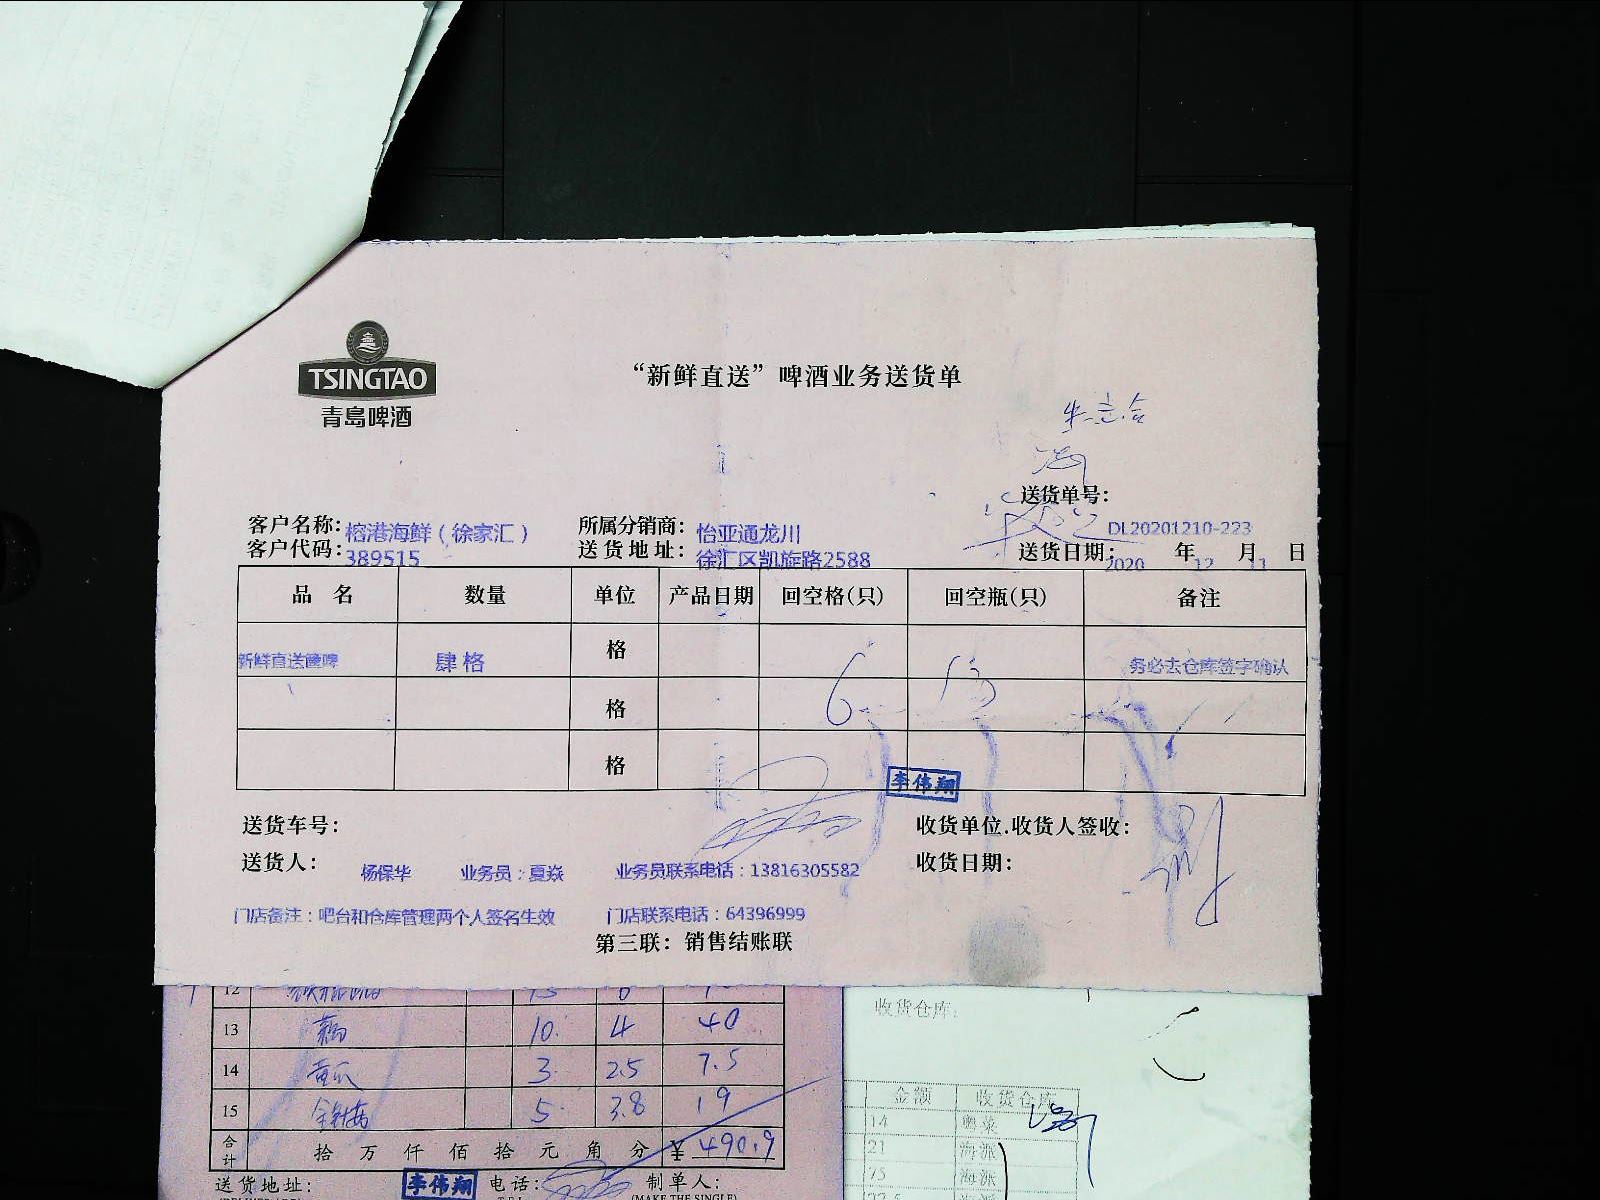 TSINGTAO
青島啤酒
“新鲜直送”啤酒业务送货单
送货单号：
DL20201210-223
客户名称：榕港海鲜（徐家汇）
所属分销商：怡亚通龙川
客户代码：389515
送货地址：徐汇区凯旋路2588
送货日期：2020 年 12 月 11 日
品名 数量 单位 产品日期 回空格(只) 回空瓶(只) 备注
新鲜直送 肆格 格 务必去仓库签字确认
格 6
格
李伟翔
送货车号：
收货单位.收货人签收：
送货人：杨保华 业务员：夏焱 业务员联系电话：13816305582
收货日期：
门店备注：吧台和仓库管理两个人签名生效 门店联系电话：64396999
第三联：销售结账联
12
13 藕 10. 4 40
14 黄瓜 3 2.5 7.5
15 金针菇 5 3.8 19
合计 拾 万 仟 佰 拾 元 角 分 ¥490.9
送货地址：
李伟翔
电话：
制单人：
(MAKE THE SINGLE)
收货仓库：
金额 收货仓库
14 粤菜
21 海派
75 海派